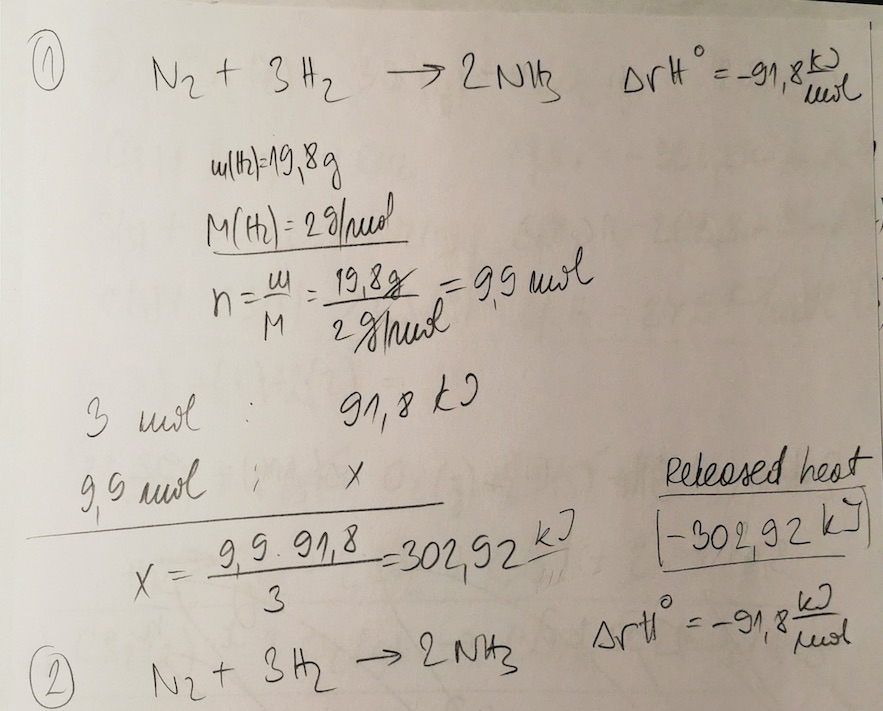 ① N₂ + 3H₂ → 2NH₃ ΔrH° = -91,8 kJ/mol
m(H₂)=19,8g
M(H₂) = 2g/mol
n = m/M = 19,8g/2g/mol = 9,9 mol
3 mol : 91,8 kJ
9,9 mol : x
Released heat
x = 9,9 · 91,8/3 = 302,92 kJ
-302,92 kJ
② N₂ + 3H₂ → 2NH₃ ΔrH° = -91,8 kJ/mol